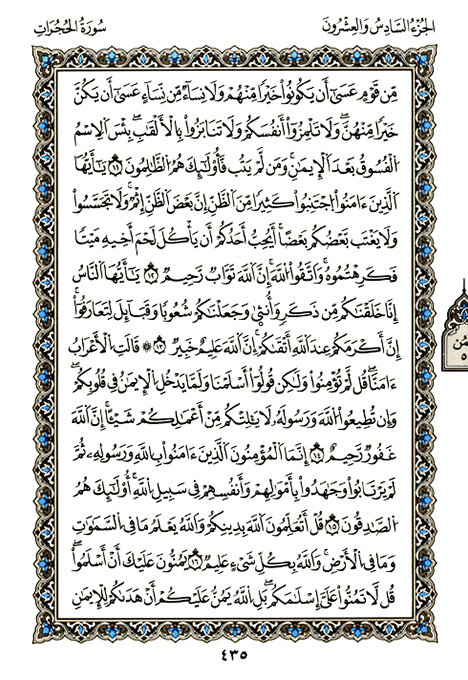 الجزء السادس والعشرون
سورة الحجرات
مِّن قَوْمٍ عَسَىٰٓ أَن يَكُونُوا۟ خَيْرًا مِّنْهُمْ وَلَا نِسَآءٌ مِّن نِّسَآءٍ عَسَىٰٓ أَن يَكُنَّ
خَيْرًا مِّنْهُنَّ ۖ وَلَا تَلْمِزُوٓا۟ أَنفُسَكُمْ وَلَا تَنَابَزُوا۟ بِٱلْأَلْقَٰبِ ۖ بِئْسَ ٱلِٱسْمُ
ٱلْفُسُوقُ بَعْدَ ٱلْإِيمَٰنِ ۚ وَمَن لَّمْ يَتُبْ فَأُو۟لَٰٓئِكَ هُمُ ٱلظَّٰلِمُونَ ١١ يَٰٓأَيُّهَا
ٱلَّذِينَ ءَامَنُوا۟ ٱجْتَنِبُوا۟ كَثِيرًا مِّنَ ٱلظَّنِّ إِنَّ بَعْضَ ٱلظَّنِّ إِثْمٌ ۖ وَلَا تَجَسَّسُوا۟
وَلَا يَغْتَب بَّعْضُكُم بَعْضًا ۚ أَيُحِبُّ أَحَدُكُمْ أَن يَأْكُلَ لَحْمَ أَخِيهِ مَيْتًا
فَكَرِهْتُمُوهُ ۚ وَٱتَّقُوا۟ ٱللَّهَ ۚ إِنَّ ٱللَّهَ تَوَّابٌ رَّحِيمٌ ١٢ يَٰٓأَيُّهَا ٱلنَّاسُ
إِنَّا خَلَقْنَٰكُم مِّن ذَكَرٍ وَأُنثَىٰ وَجَعَلْنَٰكُمْ شُعُوبًا وَقَبَآئِلَ لِتَعَارَفُوٓا۟ ۚ
إِنَّ أَكْرَمَكُمْ عِندَ ٱللَّهِ أَتْقَىٰكُمْ ۚ إِنَّ ٱللَّهَ عَلِيمٌ خَبِيرٌ ١٣ ۞ قَالَتِ ٱلْأَعْرَابُ
ءَامَنَّا ۖ قُل لَّمْ تُؤْمِنُوا۟ وَلَٰكِن قُولُوٓا۟ أَسْلَمْنَا وَلَمَّا يَدْخُلِ ٱلْإِيمَٰنُ فِى قُلُوبِكُمْ ۖ
وَإِن تُطِيعُوا۟ ٱللَّهَ وَرَسُولَهُۥ لَا يَلِتْكُم مِّنْ أَعْمَٰلِكُمْ شَيْـًٔا ۚ إِنَّ ٱللَّهَ
غَفُورٌ رَّحِيمٌ ١٤ إِنَّمَا ٱلْمُؤْمِنُونَ ٱلَّذِينَ ءَامَنُوا۟ بِٱللَّهِ وَرَسُولِهِۦ ثُمَّ
لَمْ يَرْتَابُوا۟ وَجَٰهَدُوا۟ بِأَمْوَٰلِهِمْ وَأَنفُسِهِمْ فِى سَبِيلِ ٱللَّهِ ۚ أُو۟لَٰٓئِكَ هُمُ
ٱلصَّٰدِقُونَ ١٥ قُلْ أَتُعَلِّمُونَ ٱللَّهَ بِدِينِكُمْ وَٱللَّهُ يَعْلَمُ مَا فِى ٱلسَّمَٰوَٰتِ
وَمَا فِى ٱلْأَرْضِ ۚ وَٱللَّهُ بِكُلِّ شَىْءٍ عَلِيمٌ ١٦ يَمُنُّونَ عَلَيْكَ أَنْ أَسْلَمُوا۟ ۖ
قُل لَّا تَمُنُّوا۟ عَلَىَّ إِسْلَٰمَكُم ۖ بَلِ ٱللَّهُ يَمُنُّ عَلَيْكُمْ أَنْ هَدَىٰكُمْ لِلْإِيمَٰنِ
٤٣٥